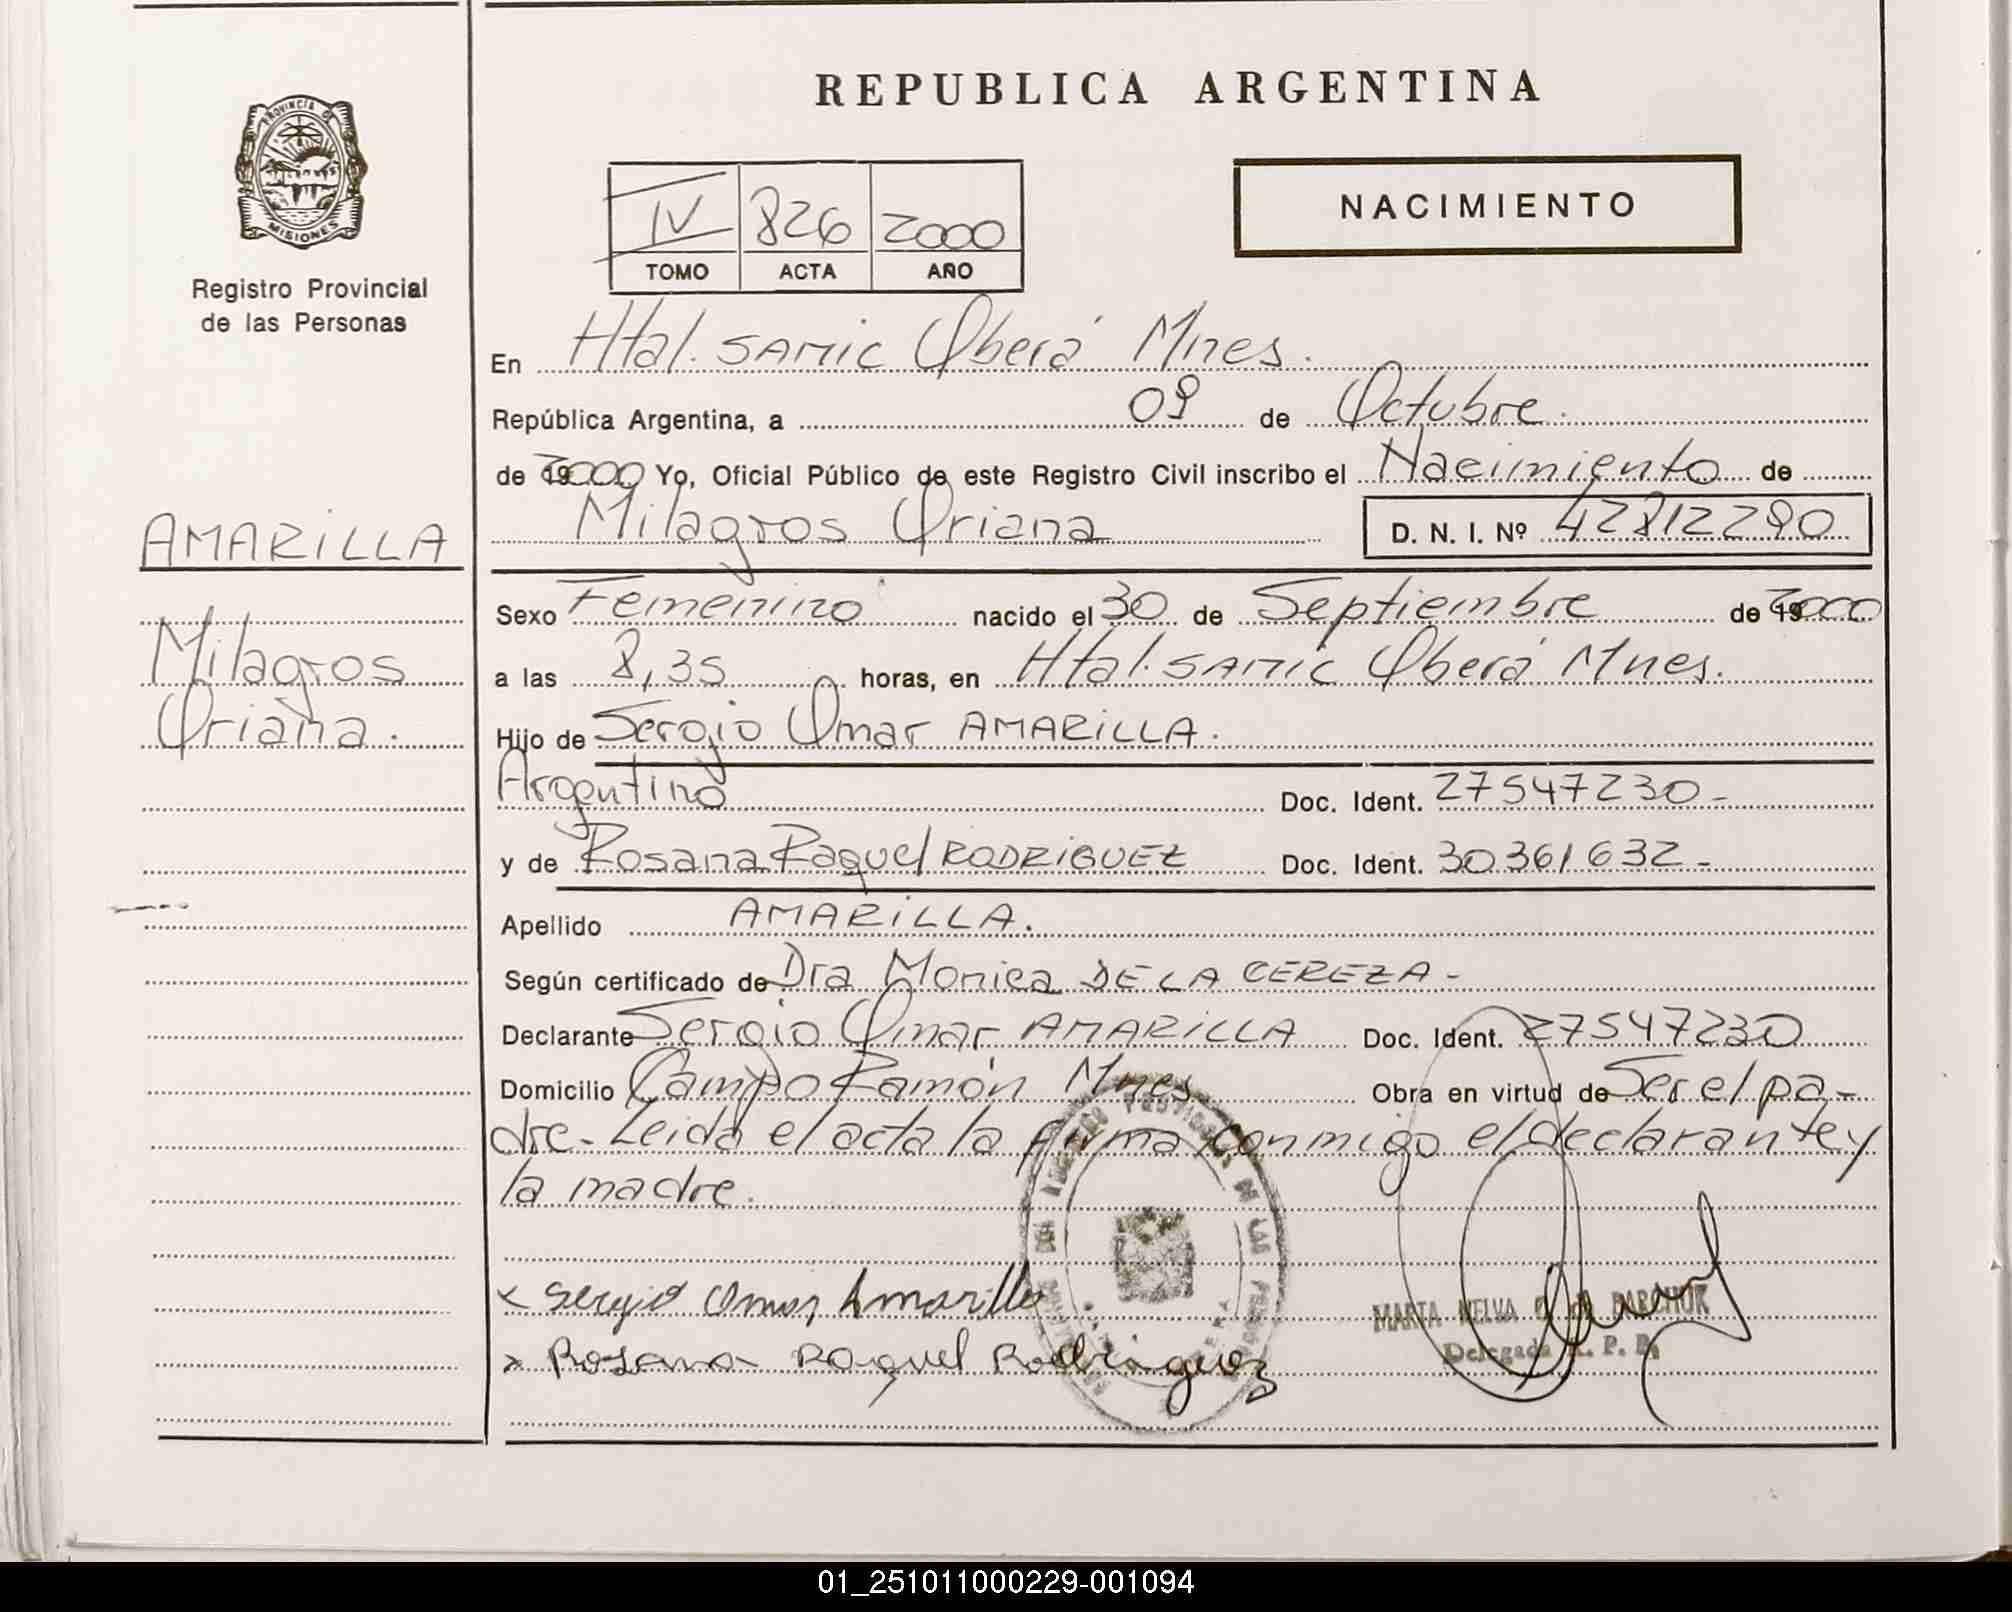 REPUBLICA ARGENTINA
PROVINCIA DE
MISIONES
Registro Provincial
de las Personas
IV 826 2000
TOMO ACTA AÑO
NACIMIENTO
En Htal. SAMIC Oberá Mnes.
República Argentina, a 09 de Octubre.
de 2000 Yo, Oficial Público de este Registro Civil inscribo el Nacimiento de
Milagros Oriana D. N. I. Nº 42812290
AMARILLA
Milagros
Oriana.
Sexo Femenino nacido el 30 de Septiembre de 2000
a las 8,35 horas, en Htal. SAMIC Oberá Mnes.
Hijo de Sergio Omar AMARILLA.
Argentino Doc. Ident. 27547230-
y de Rosana Raquel RODRIGUEZ Doc. Ident. 30361632-
Apellido AMARILLA.
Según certificado de Dra Monica DE LA CEREZA-
Declarante Sergio Omar AMARILLA Doc. Ident. 27547230
Domicilio Campo Ramón Mnes Obra en virtud de Ser el pa-
dre- Leida el acta la firma conmigo el declarante y
la madre.
x Sergio Omar Amarilla
x Rosana Raquel Rodriguez
MARTA NELVA DE BARCHUK
Delegada R. P. P.
01_251011000229-001094